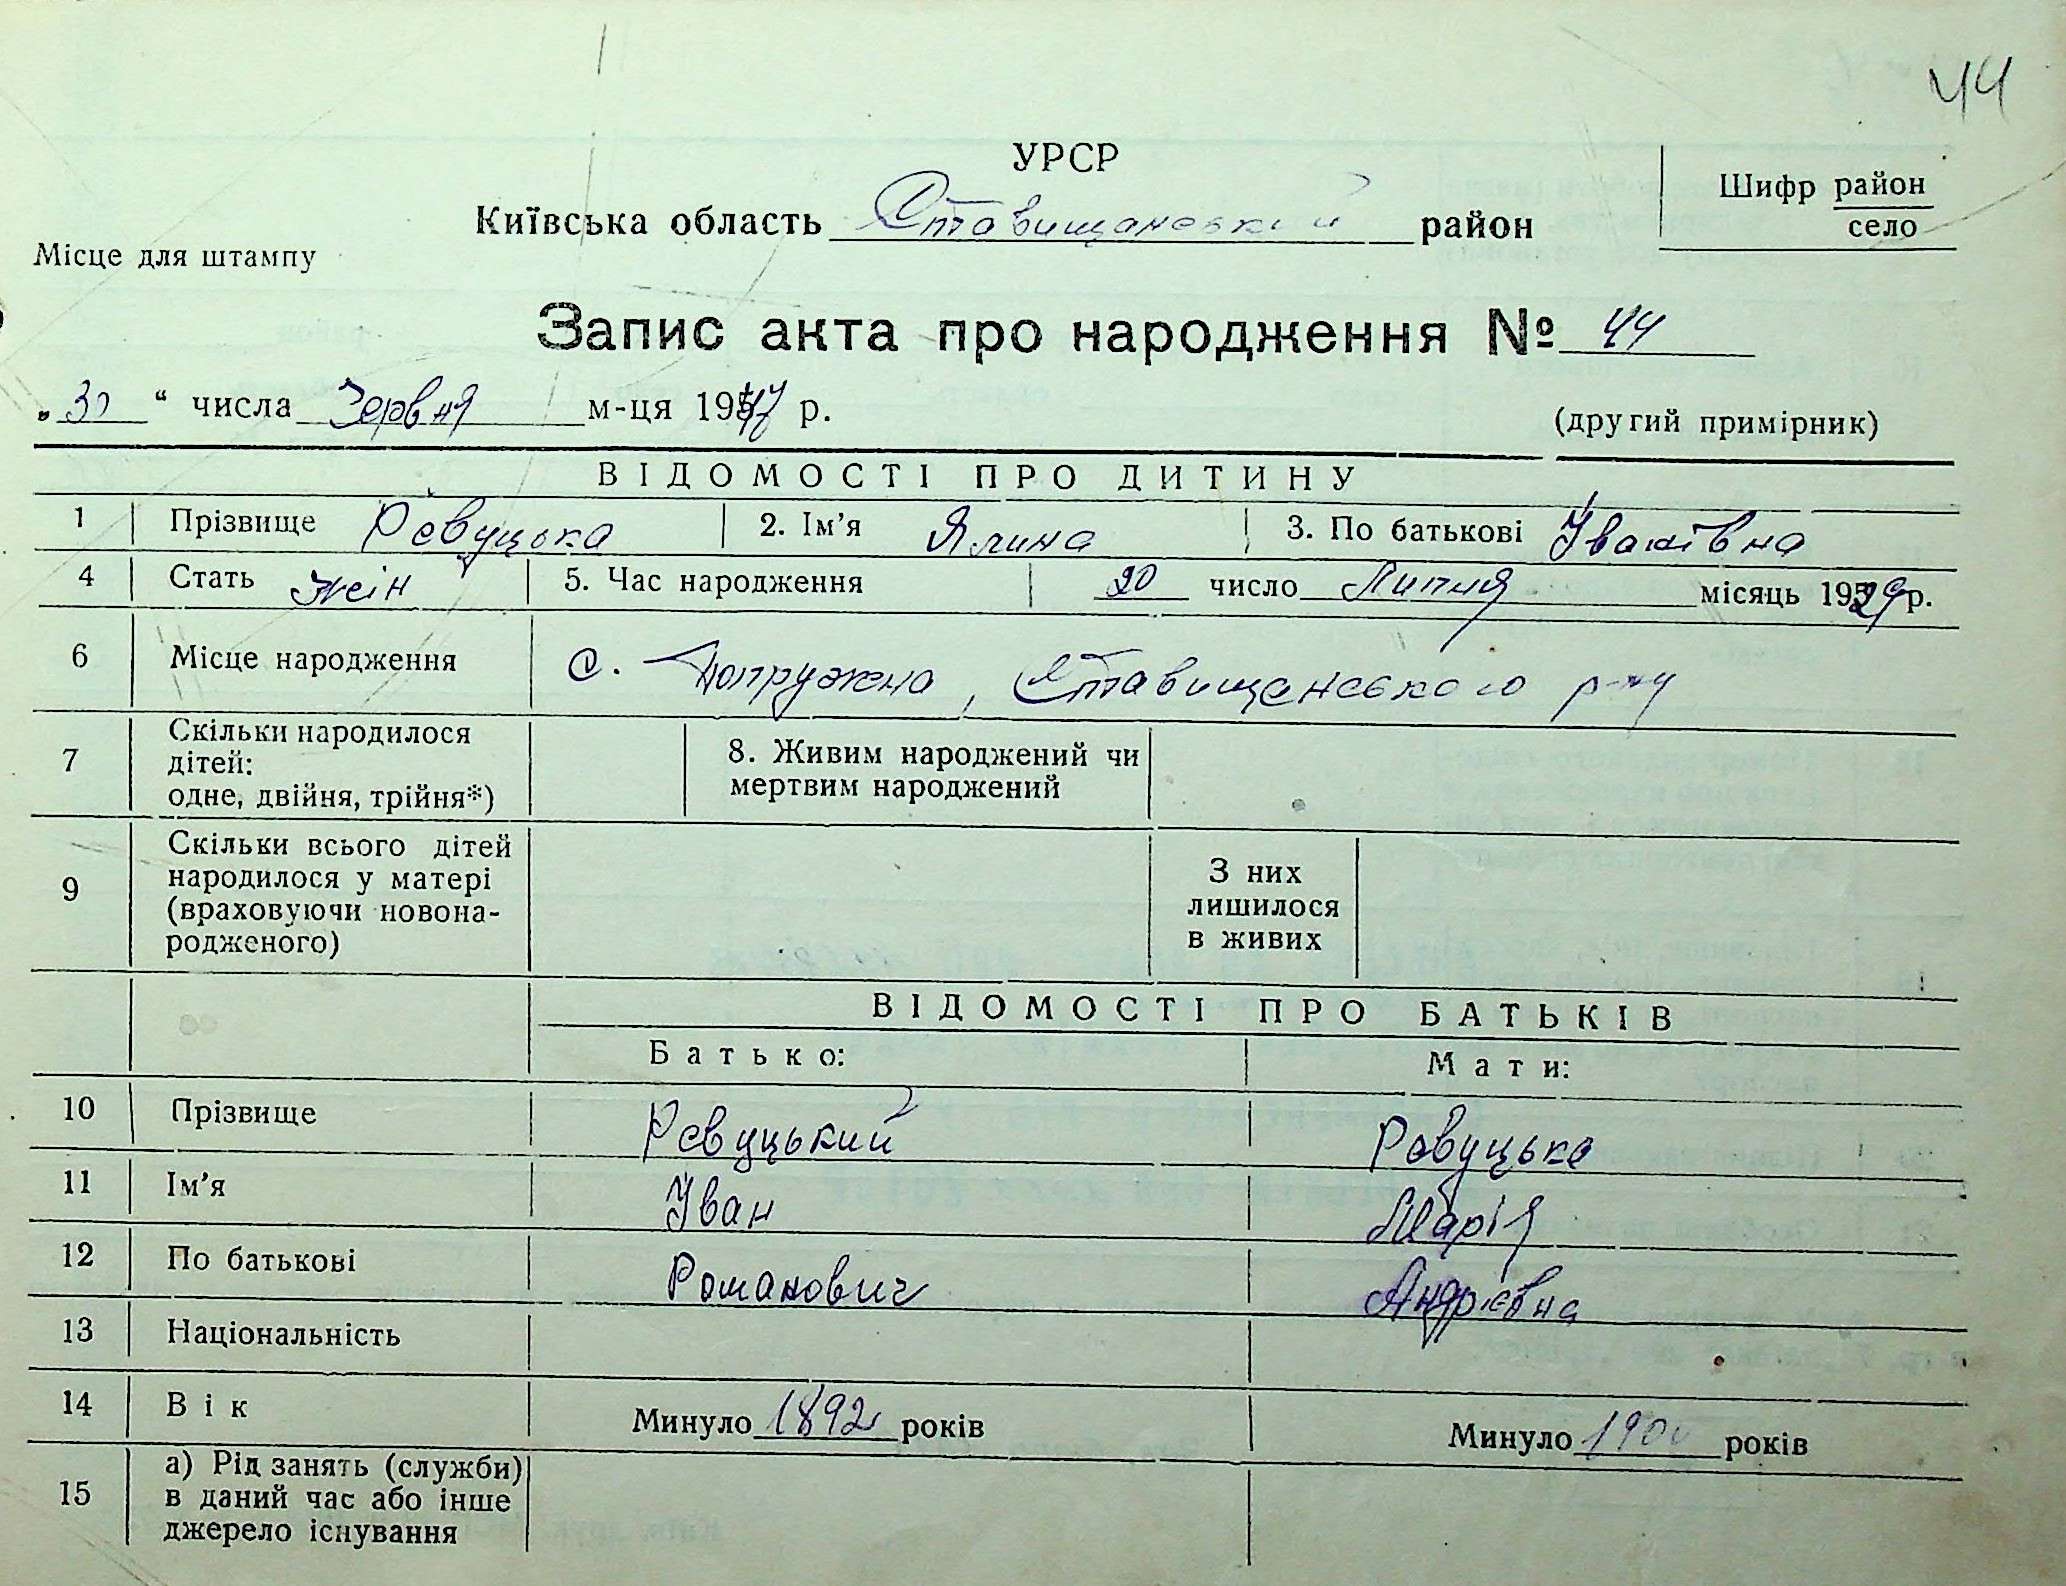 44
УРСР
Київська область Ставищанський район
Шифр район
село
Місце для штампу
Запис акта про народження № 44
„30“ числа Червня м-ця 1947 р.
(другий примірник)
ВІДОМОСТІ ПРО ДИТИНУ
1 Прізвище Ревуцька 2. Ім’я Ялина 3. По батькові Іванівна
4 Стать жін 5. Час народження 20 число Липня місяць 1929 р.
6 Місце народження с. Попружна, Ставищанського р-ну
7 Скільки народилося дітей: одне, двійня, трійня*) 8. Живим народжений чи мертвим народжений
9 Скільки всього дітей народилося у матері (враховуючи новонародженого) З них лишилося в живих
ВІДОМОСТІ ПРО БАТЬКІВ
Батько: Мати:
10 Прізвище Ревуцький Ревуцька
11 Ім’я Іван Марія
12 По батькові Романович Андрієвна
13 Національність
14 Вік Минуло 1892 років Минуло 1900 років
15 а) Рід занять (служби) в даний час або інше джерело існування